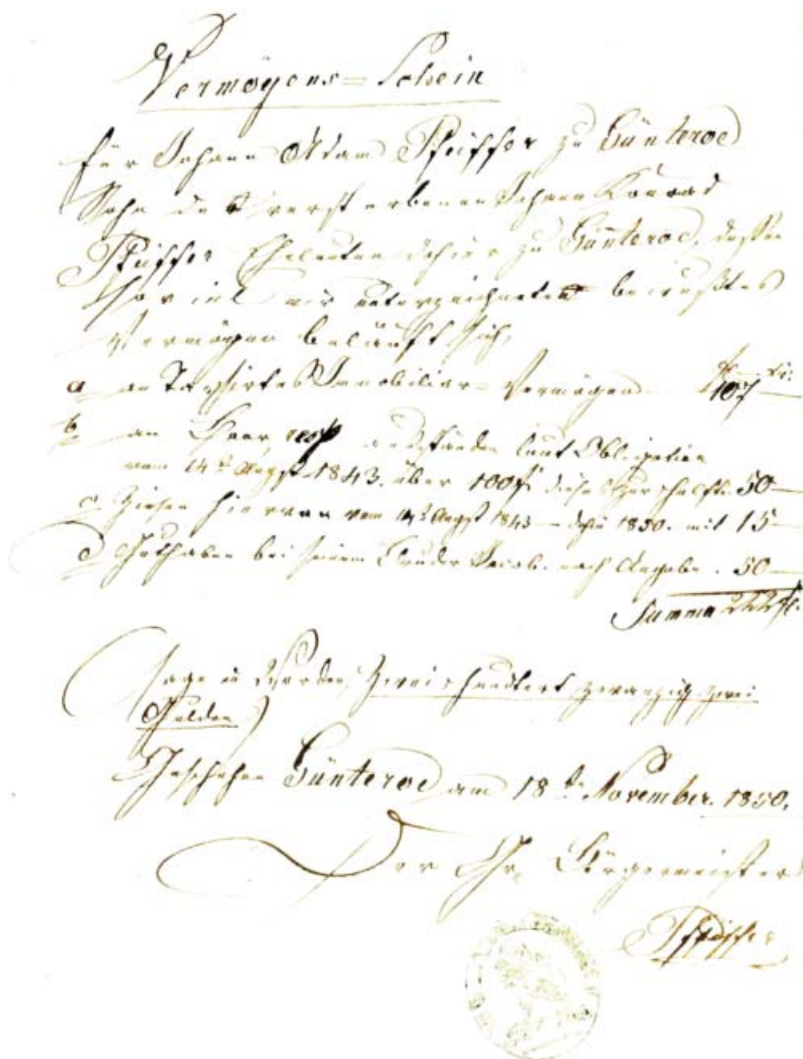 Vermögens=Schein
für Johann Adam Pfeiffer zu Günterod
Sohn der verstorbenen Johann Konrad
Pfeiffer Eheleuten dahier zu Günterod, dessen
Vermögen beläuft sich,
a an Taxirtes Immobiliar=Vermögen f 107 — kr:
b an Baar, resp ausständen laut Obligation
vom 14t Augst 1843. über 100 f. diesel zur Hälfte. 50 —
c Zinsen hiervon vom 14t Augst 1843 — 1850. mit 15 —
d Guthaben bei seinem Bruder Jacob. nach Angabe. 50 —
Summa 222 fl.
(sage in Worden, Zwei hundert zwanzig zwei
Gulden)
Geschehen Günterod am 18t November. 1850.
Der Bürgermeister
Pfeiffer